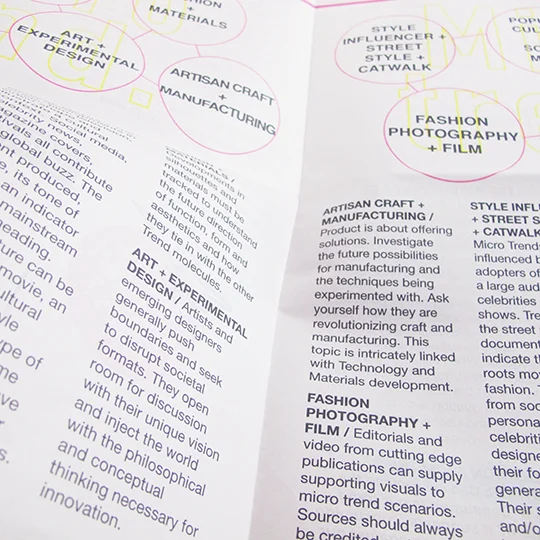 ION +
MATERIALS
ART +
EXPERIMENTAL
DESIGN
ARTISAN CRAFT
+
MANUFACTURING
STYLE
INFLUENCER +
STREET
STYLE +
CATWALK
FASHION
PHOTOGRAPHY
+ FILM
cultural
news,
social media,
magazine covers,
ivals all contribute
global buzz. The
ent produced,
e, its tone of
an indicator
mainstream
heading.
ture can be
movie, an
ultural
yle
ype of
me
ve
r
s.
in
materials must be
tracked to understand
the future direction
of function, form and
aesthetics and how
they tie in with the other
Trend molecules.
ART + EXPERIMENTAL
DESIGN / Artists and
emerging designers
generally push
boundaries and seek
to disrupt societal
formats. They open
room for discussion
with their unique vision
and inject the world
with the philosophical
and conceptual
thinking necessary for
innovation.
ARTISAN CRAFT +
MANUFACTURING /
Product is about offering
solutions. Investigate
the future possibilities
for manufacturing and
the techniques being
experimented with. Ask
yourself how they are
revolutionizing craft and
manufacturing. This
topic is intricately linked
with Technology and
Materials development.
FASHION
PHOTOGRAPHY +
FILM / Editorials and
video from cutting edge
publications can supply
supporting visuals to
micro trend scenarios.
Sources should always
be credited
STYLE INFL
+ STREET S
+ CATWALK
Micro Trends
influenced b
adopters of
a large aud
celebrities
shows. Tre
the street
document
indicate th
roots mov
fashion. T
from soc
persona
celebriti
designe
their fo
genera
Their s
and/o